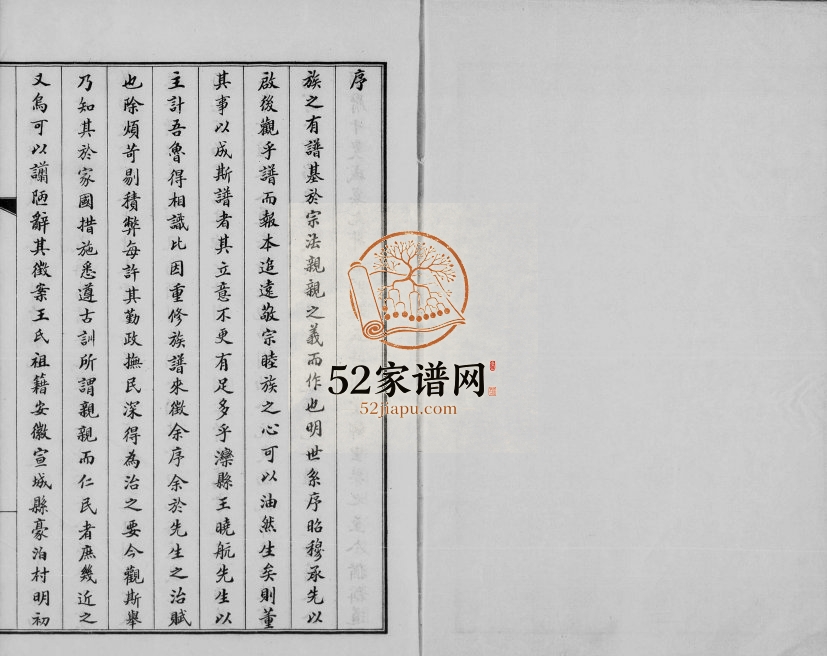 序
族之有譜基於宗法親親之義而作也明世系序昭穆承先以
啟後觀乎譜而報本追遠敬宗睦族之心可以油然生矣則董
其事以成斯譜者其立意不更有足多乎灤縣王曉航先生以
主計吾魯得相識比因重修族譜來徵余序余於先生之治賦
也除煩苛剔積弊每許其勤政撫民深得為治之要今觀斯舉
乃知其於家國措施悉遵古訓所謂親親而仁民者庶幾近之
又烏可以譾陋辭其徵案王氏祖籍安徽宣城縣豪泊村明初
52家谱网
52jiapu.com